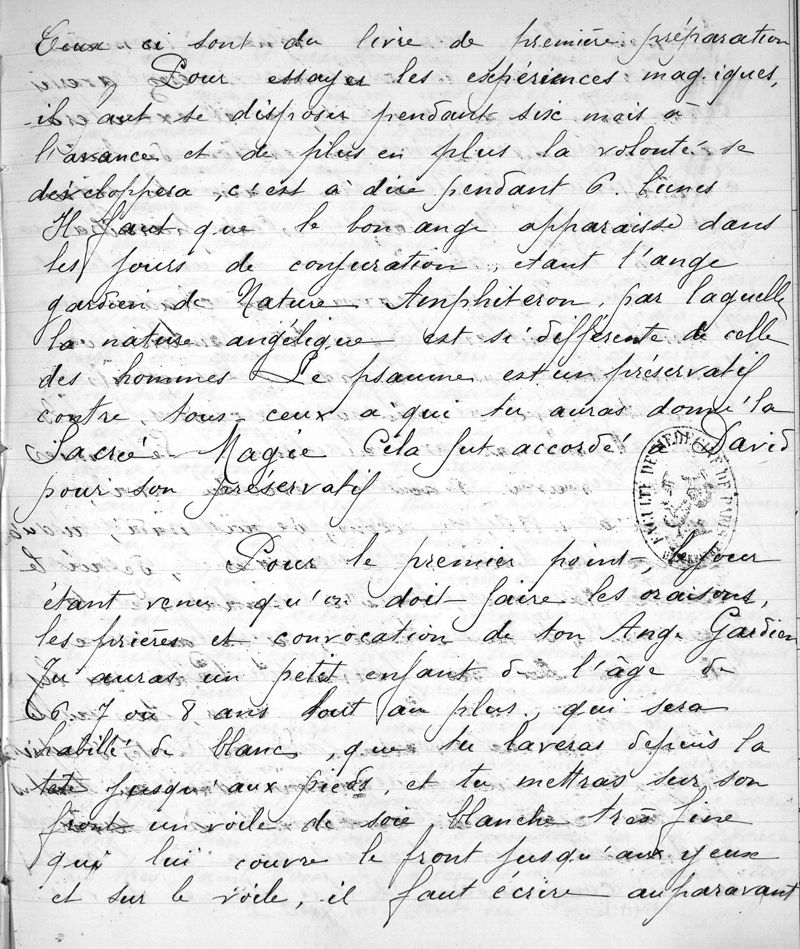 Ceux ci sont du livre de première préparation
Pour essayer les expériences magiques,
il faut se disposer pendant six mois à
l'avance et de plus en plus la volonté se
developpera, c'est à dire pendant 6. lunes
Il faut que le bon ange apparaisse dans
les jours de conjuration, etant l'ange
gardien de Nature Amphiteron, par laquelle
la nature angélique est si différente de celle
des hommes Le psaume est un préservatif
contre tous ceux à qui tu auras donné la
Sacrée Magie Cela fut accordé à David
pour son préservatif
Pour le premier point, le jour
étant venu qu'on doit faire les oraisons,
les prières et convocation de ton Ange Gardien
Tu auras un petit enfant de l'âge de
6. 7 ou 8 ans tout au plus, qui sera
habillé de blanc, que tu laveras depuis la
tete jusqu'aux pieds, et tu mettras sur son
front un voile de soie blanche très fine
qui lui couvre le front jusqu'aux yeux
et sur le voile, il faut écrire auparavant
FACULTE DE MEDECINE DE PARIS